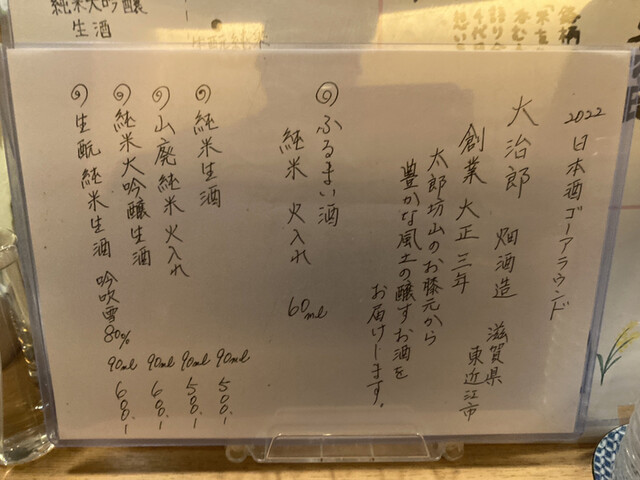 2022 日本酒ゴーアラウンド
大治郎 畑酒造 滋賀県
東近江市
創業 大正三年
太郎坊山のお膝元から
豊かな風土の醸すお酒を
お届けします。
◎ふるまい酒
純米 火入れ 60ml
◎純米生酒 90ml 500.-
◎山廃純米火入れ 90ml 500.-
◎純米大吟醸生酒 90ml 600.-
◎生酛純米生酒 吟吹雪80% 90ml 600.-
純米大吟醸
生酒
生酛純米